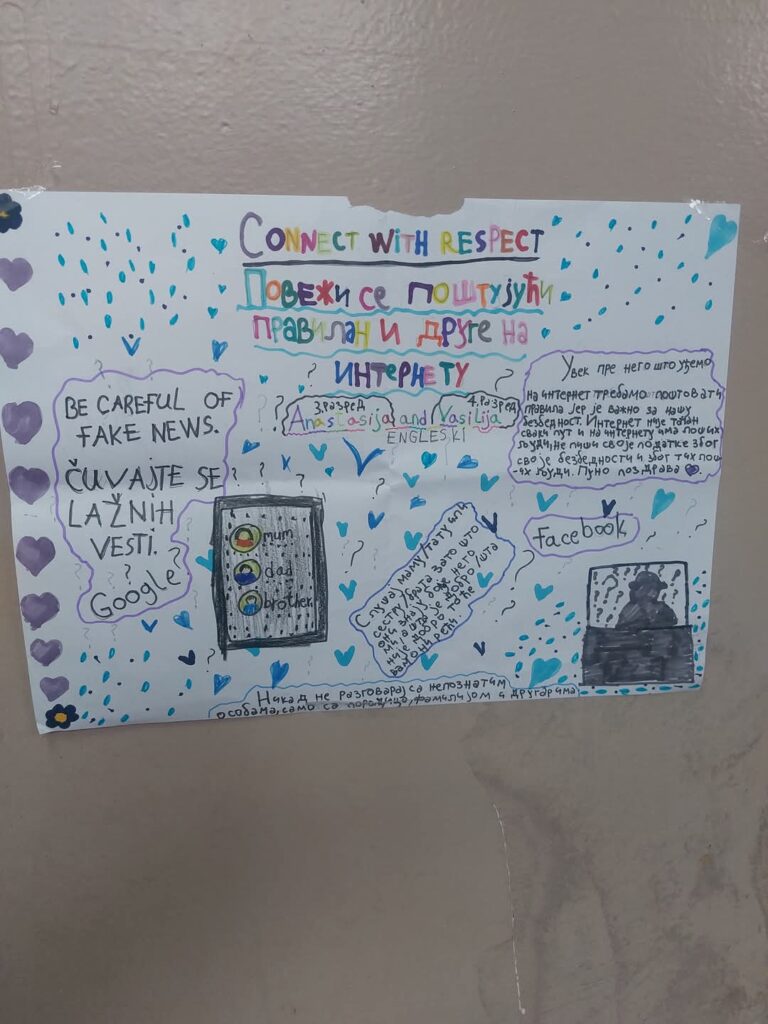 CONNECT WITH RESPECT
ПОВЕЖИ СЕ ПОШТУЈУЋИ
ПРАВИЛАН И ДРУГЕ НА
ИНТЕРНЕТУ
3. разред
4. разред
Anastasija and Vasilija
ENGLESKI
BE CAREFUL OF
FAKE NEWS.
ČUVAJTE SE
LAŽNIH
VESTI.
Google
Увек пре него што уђемо
на интернет требамо поштовати
правила јер је важно за нашу
безбедност. Интернет није таћан
сваки пут и на интернету има лоших
људи, не пиши своје податке због
своје безбедности и због тих лош
-их људи. Пуно поздрава
Facebook
mum
dad
brother
Слушај маму/тату или
сестру/брата зато што
они знају боље него
ми, а шта је добро/шта
није добро то ће
вам они рећи.
Никад не разговарај са непознатим
особама, само са породица, фамилијом и другарима